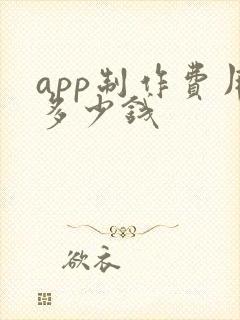 app制作费用
多少钱
欲衣